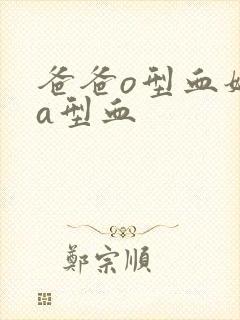 爸爸o型血
a型血
鄭宗順